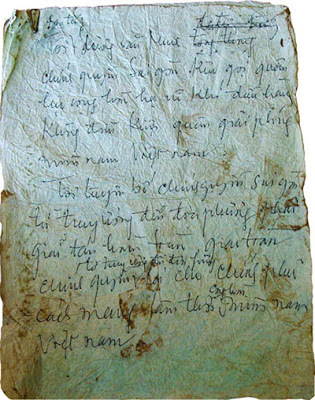 Tôi dương văn Minh Tổng thống
chính quyền Sai gòn kêu gọi quân
lực cộng hòa hạ vũ khí đầu hàng
không điều kiện quân giải phóng
miền nam Việt nam
Tôi tuyên bố chính quyền Sai gòn
từ trung ương đến địa phương phải
giải tán hoàn toàn giao toàn
từ trung ương đến địa phương
chính quyền lại cho chính phủ
cách mạng lâm thời miền nam
Việt nam